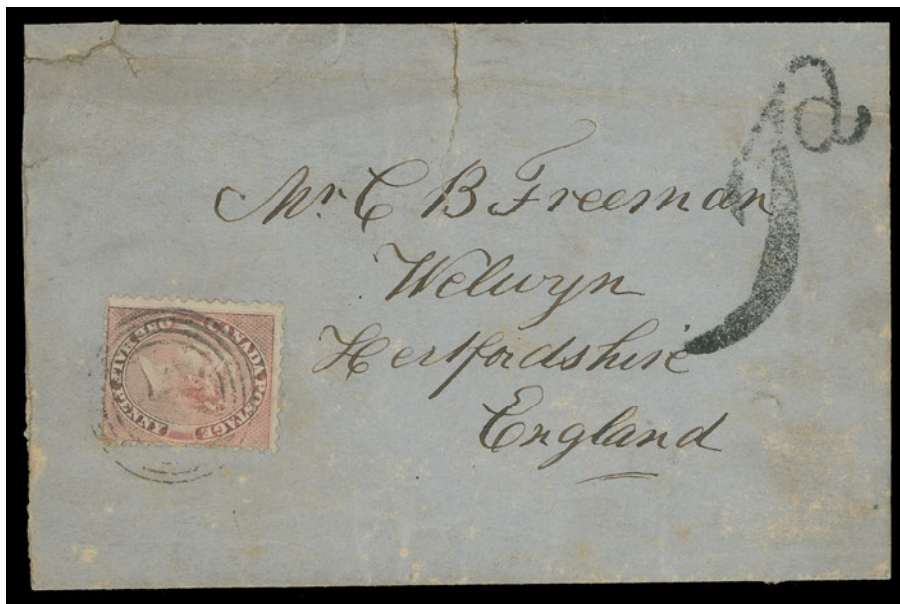 1d
Mr. C B Freeman
Welwyn
Hertfordshire
England
CANADA POSTAGE
ONE HALF PENNY